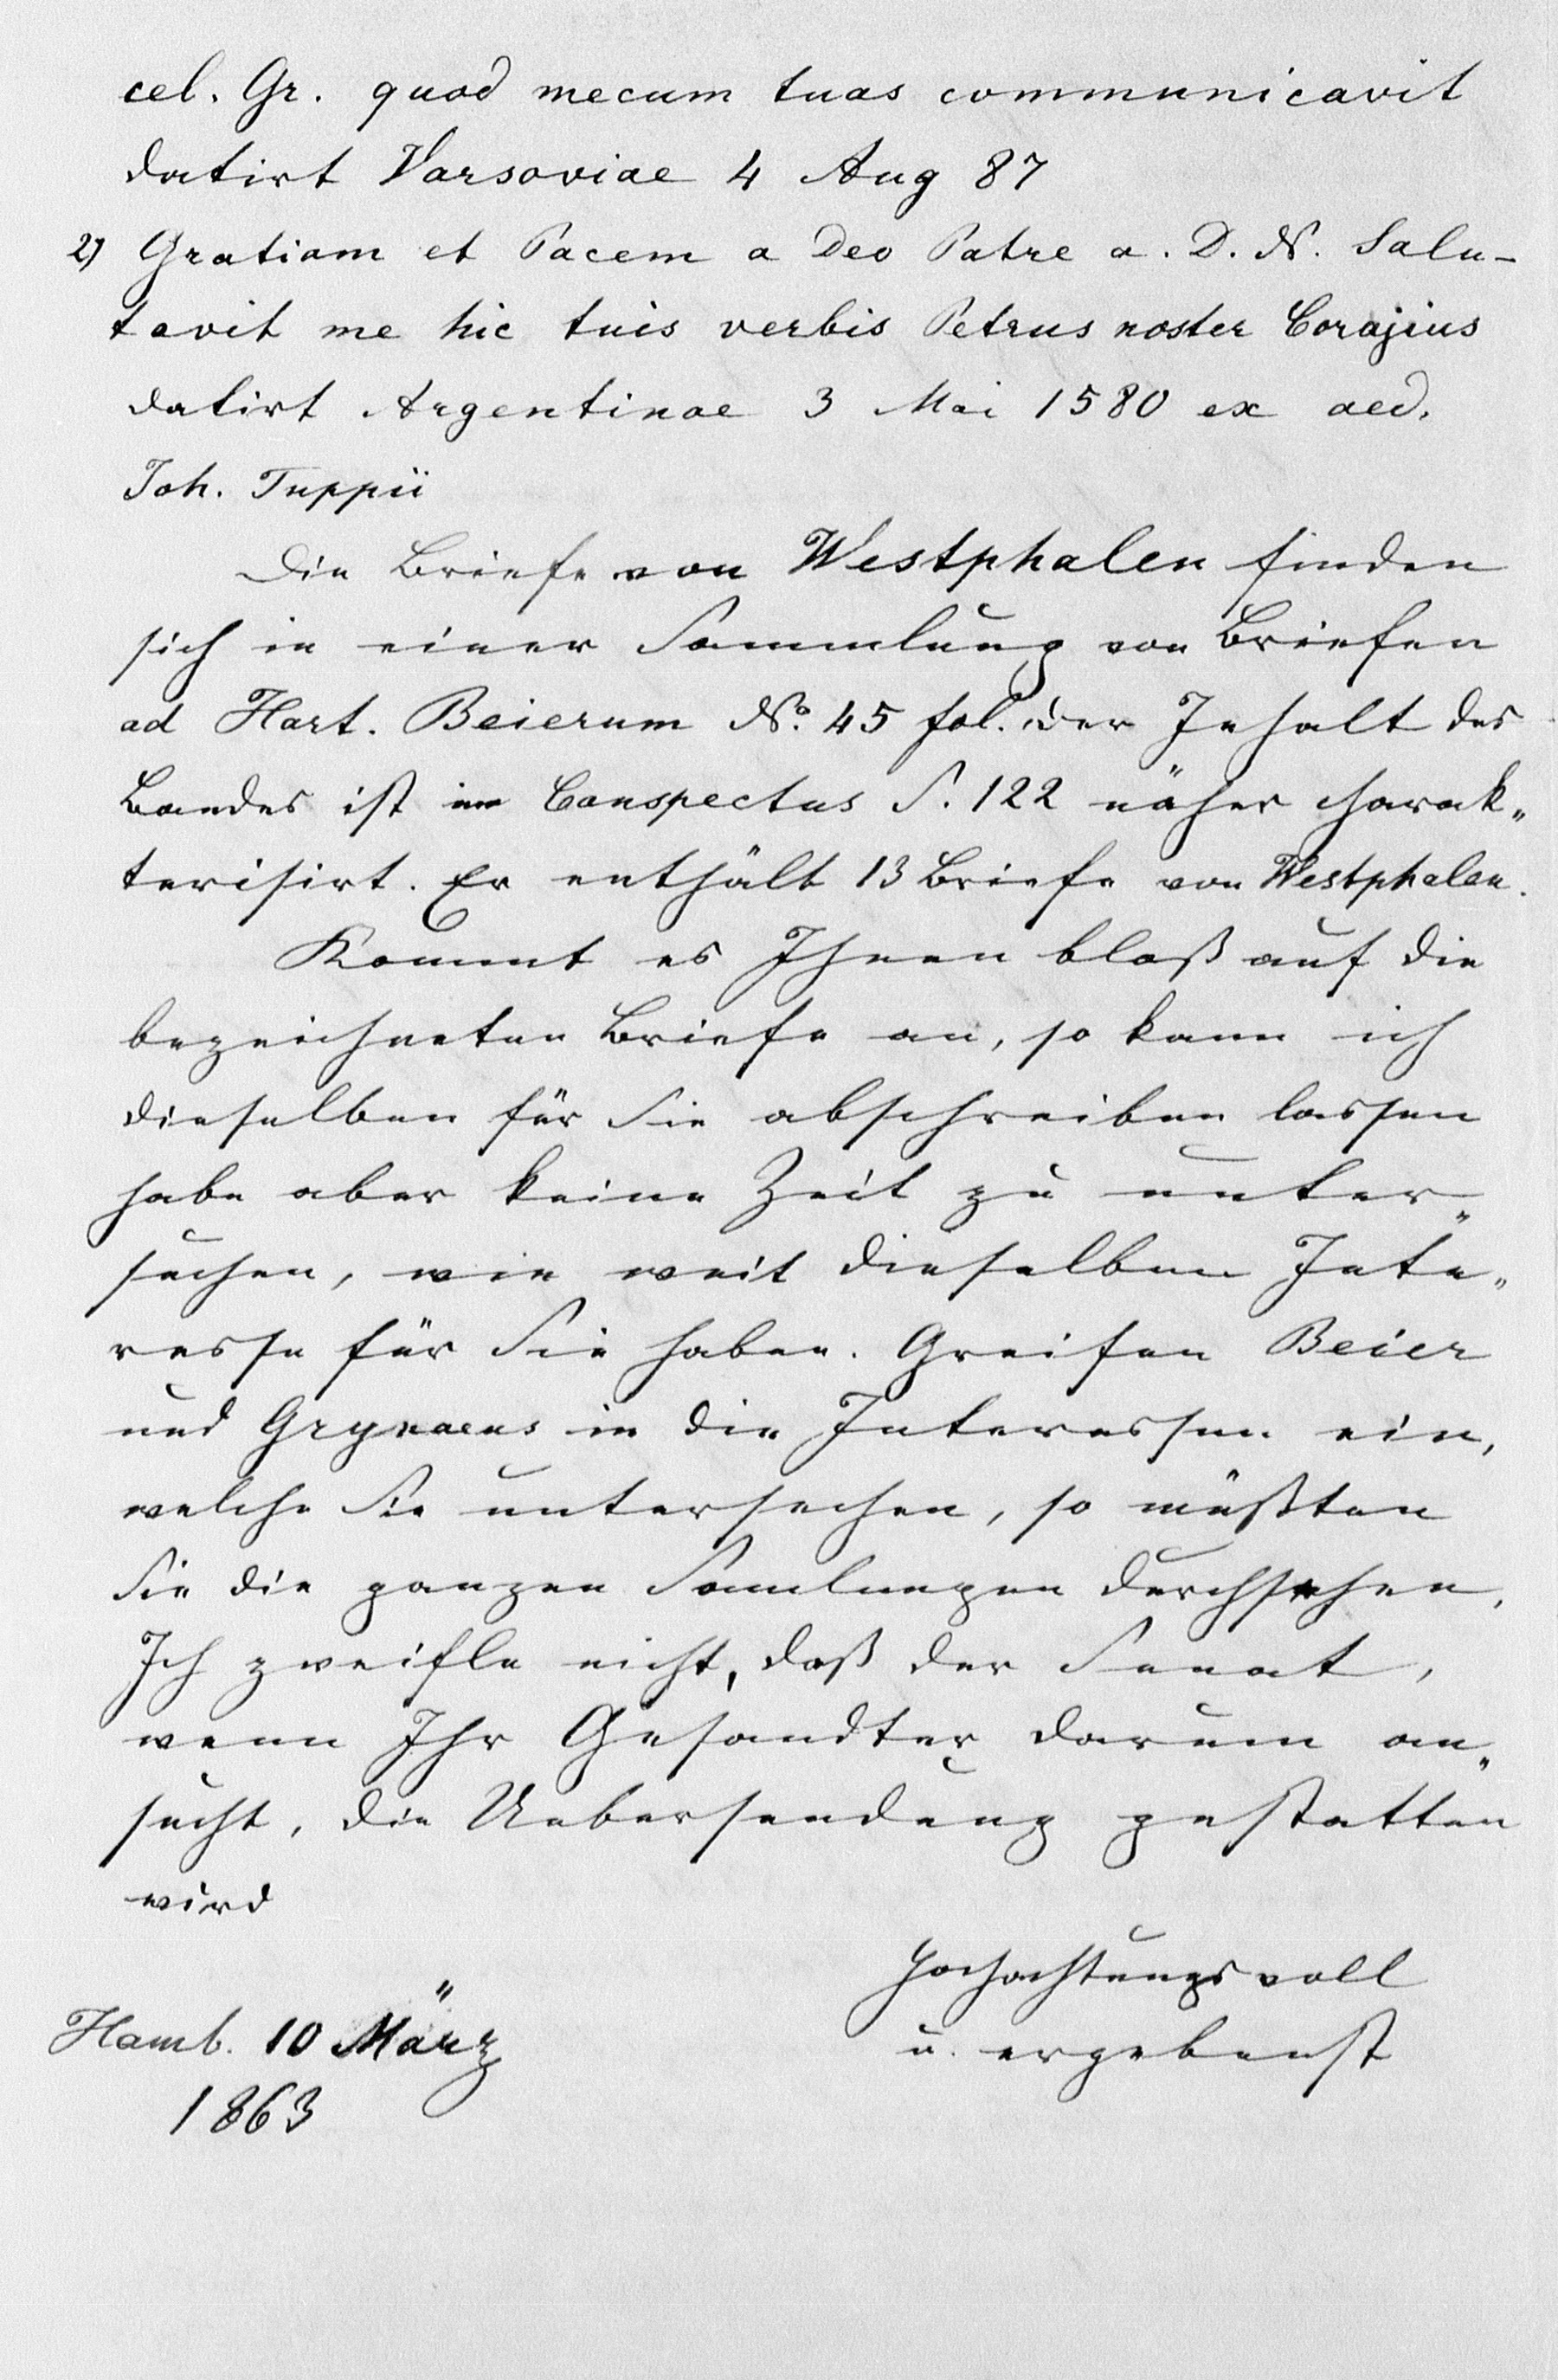 cel. Gr. quod mecum tuas communicavit
datirt Varsoviae 4 Aug 87
2) Gratiam et Pacem a Deo Patre a. D. N. Salu-
tavit me hic tuis verbis Petrus noster Corajius
datirt Argentinae 3 Mai 1580 ex aed.
Joh. Tuppii
Die Briefe von Westphalen finden
sich in einer Sammlung von Briefen
ad Hart. Beierum No. 45 fol. der Inhalt des
Bandes ist im Conspectus S. 122 näher charak„
terisirt. Er enthält 13 Briefe von Westphalen.
Kommt es Ihnen bloß auf die
bezeichneten Briefe an, so kann ich
dieselben für Sie abschreiben lassen
habe aber keine Zeit zu unter„
suchen, wie weit dieselben Inte„
resse für Sie haben. Greifen Beier
und Grynaeus in die Interessen ein,
welche Sie untersuchen, so müßten
Sie die ganzen Samlungen durchsehen.
Ich zweifle nicht, daß der Senat,
wenn Ihr Gesandter darum an„
sucht, die Uebersendung gestatten
wird
Hochachtungsvoll
u. ergebenst
Hamb. 10 März
1863